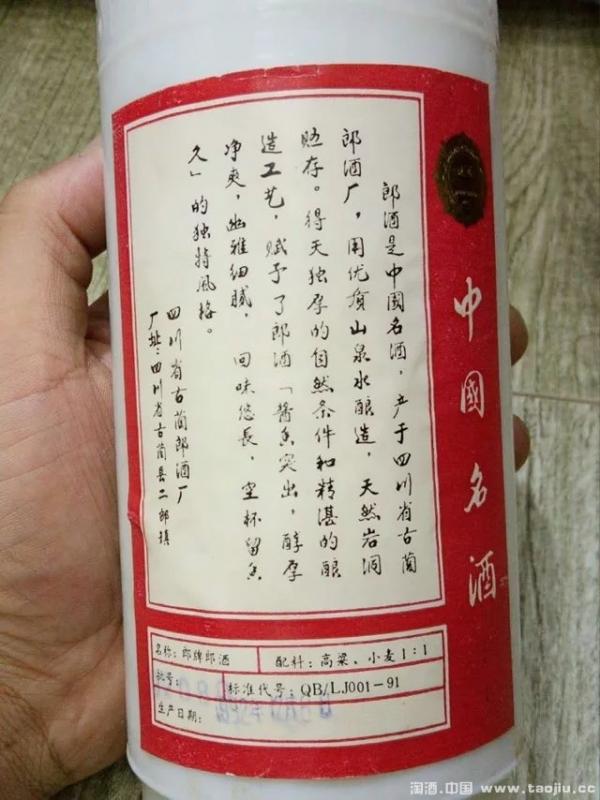 中國名酒
郎酒是中國名酒，产于四川省古蔺
郎酒厂，用优质山泉水酿造，天然岩洞
贮存。得天独厚的自然条件和精湛的酿
造工艺，赋予了郎酒「醬香突出，醇厚
净爽，幽雅细腻，回味悠長，空杯留香
久」的独特风格。
四川省古蔺郎酒厂
厂址：四川省古蔺县二郎镇
名称：郎牌郎酒
配料：高粱、小麦1:1
批号：
标准代号：QB/LJ001-91
生产日期：
淘酒.中国 www.taojiu.cc